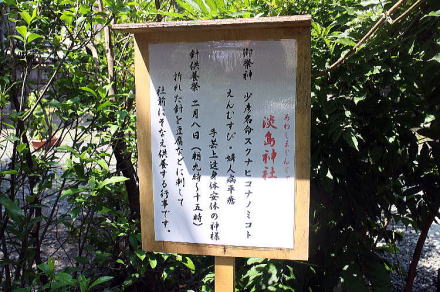 あわしまじんじゃ
淡島神社
御祭神　少彦名命スクナヒコナノミコト
えんむすび・婦人病平癒
手芸上達身体安休の神様
針供養祭　二月八日（朝九時〜十五時）
折れた針を豆腐などに刺して
社前にそなえ供養する行事です。